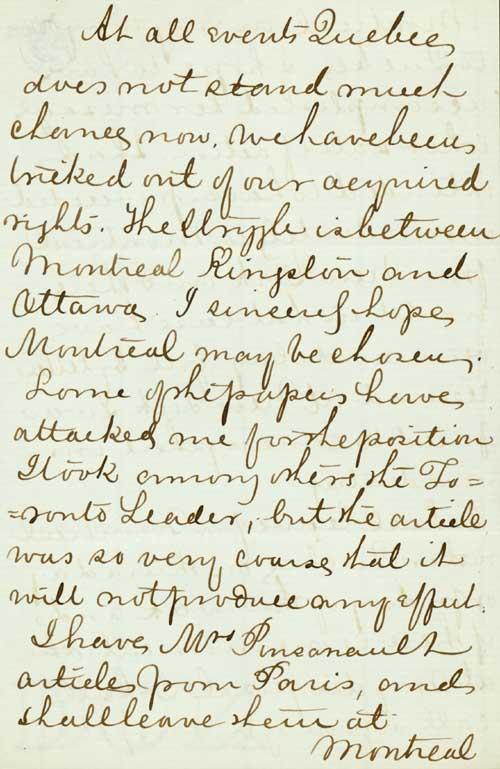 At all events Quebec
does not stand much
chance now. We have been
tricked out of our acquired
rights. The struggle is between
Montreal Kingston and
Ottawa. I sincerely hope
Montreal may be chosen.
Some of the papers have
attacked me for the position
I took among others the To=
=ronto Leader, but the article
was so very coarse that it
will not produce any effect.
I have Mrs Pinsonault
articles from Paris, and
shall leave them at
Montreal